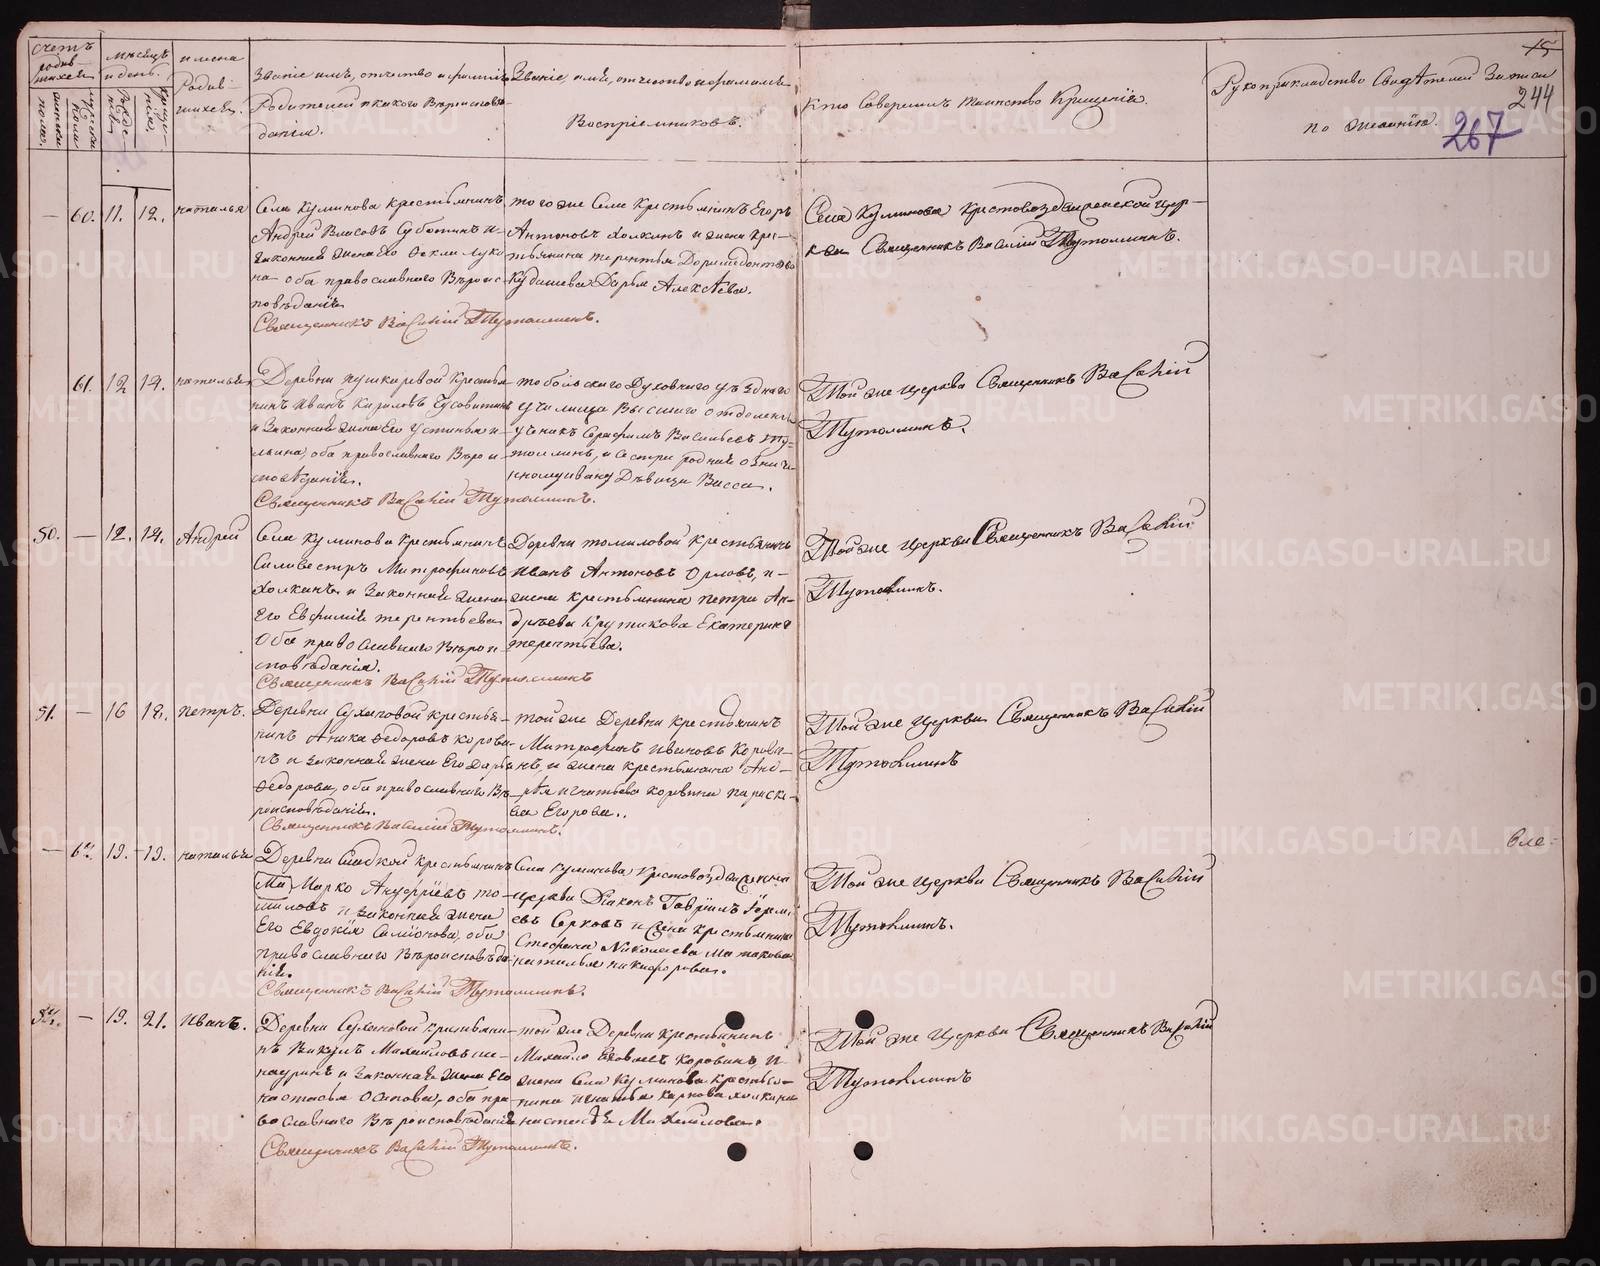 счетъ родив-
шихся
мѣсяцъ
и день.
имена
Родив-
шихся.
Званіе имя, отчество и фамилія
Родителей и какого Вѣроисповѣ-
данія.
Званіе, имя, отчество и фамилія
Воспріемниковъ.
Кто Совершилъ таинство Крещенія.
Рукоприкладство Свидѣтелей Записи
по желанію.
15
244
267
— 60. 11. 12. наталья
Села Куминова крестьянинъ
Андрей Власовъ Субботинъ и
законная жена его Ѳекла Луки-
на оба православнаго Вѣроис-
повѣданія.
Священникъ Василій Тутолминъ.
того же Села Крестьянинъ Егоръ
Антоновъ Холкинъ и жена крес-
тьянина терентья Доримедонтова
Кудашева Дарья Алексѣева.
Села Куминова Крестовоздвиженской цер-
кви Священникъ Василій Тутолминъ.
61. 12 14. наталья
Деревни пушкаревой Крестья-
нинъ Иванъ Кириловъ
и Законная жена Его Устинья и-
льина, оба православнаго Вѣрои-
сповѣданія.
Священникъ Василій Тутолминъ.
тобольскаго Духовнаго уѣзднаго
училища Высшаго отделенія
ученикъ Серафимъ Васильевъ Ту-
толминъ, и Сестра родная
Дѣвица Васса.
Той же церкви Священникъ Василій
Тутолминъ.
50. — 12. 14. Андрей
Села куминова крестьянинъ
Силивестръ Митрофановъ
Холкинъ и Законная жена
Его Евфимія терентьева
Оба православнаго Вѣрои-
сповѣданія.
Священникъ Василій Тутолминъ
Деревни томиловой крестьянинъ
Иванъ Антоновъ Орловъ, и
жена крестьянина петра Ан-
дреева Крутикова Екатерина
терентьева.
Той же церкви Священникъ Василій
Тутолминъ.
51. — 16 18. петръ.
Деревни Сухановой крестья-
нинъ Аника Ѳедоровъ корови-
нъ и законная жена Его Дарья
Ѳедорова, оба православнаго Вѣ-
роисповѣданія.
Священникъ Василій Тутолминъ.
той же Деревни крестьянинъ
Митрофанъ ивановъ Корови-
нъ, и жена крестьянина Анд-
рѣя игнатьева коровина параске-
ва Егорова.
Той же церкви Священникъ Василій
Тутолминъ
— 62. 19. 19. наталья
Деревни Сладкой крестьянинъ
Марко Ануфріевъ то-
миловъ и законная жена
Его Евдокія Симіонова, оба
православнаго Вѣроисповѣда-
нія.
Священникъ Василій Тутолминъ.
Села куминова Крестовоздвиженской
церкви Діаконъ Гавріилъ
Серковъ и жена крестьянина
Стефана Николаева
наталья никифорова.
Той же церкви Священникъ Василій
Тутолминъ.
Сле-
52. — 19. 21. Иванъ.
Деревни Сухановой крестьяни-
нъ Викулъ Михайловъ
и законная жена его
настасья Осипова, оба пра-
вославнаго Вѣроисповѣданія
Священникъ Василій Тутолминъ.
той же Деревни крестьянинъ
Михайло Яковлевъ Коровинъ, и
жена Села Куминова крестья-
нина игнатья карпова холкина
Михайлова.
Той же церкви Священникъ Василій
Тутолминъ
METRIKI.GASO-URAL.RU